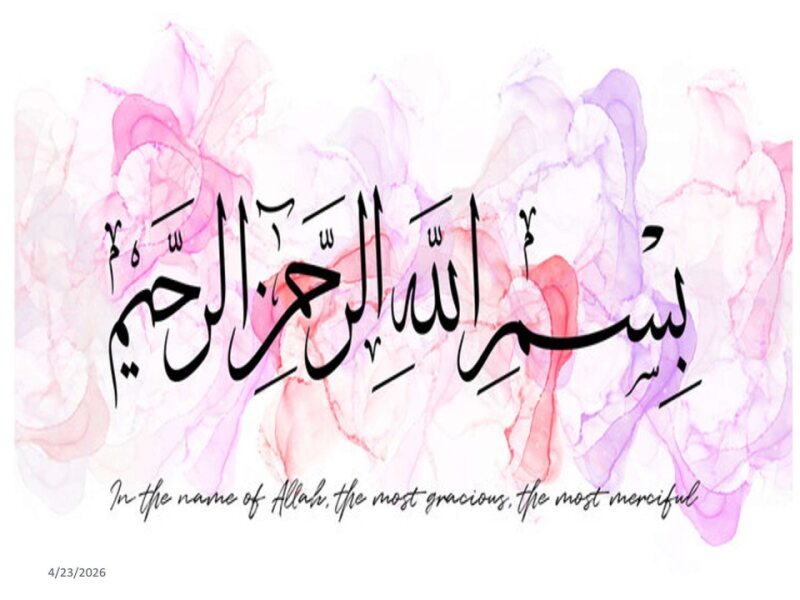 بِسْمِ اللَّهِ الرَّحْمَٰنِ الرَّحِيمِ
In the name of Allah, the most gracious, the most merciful
4/23/2026